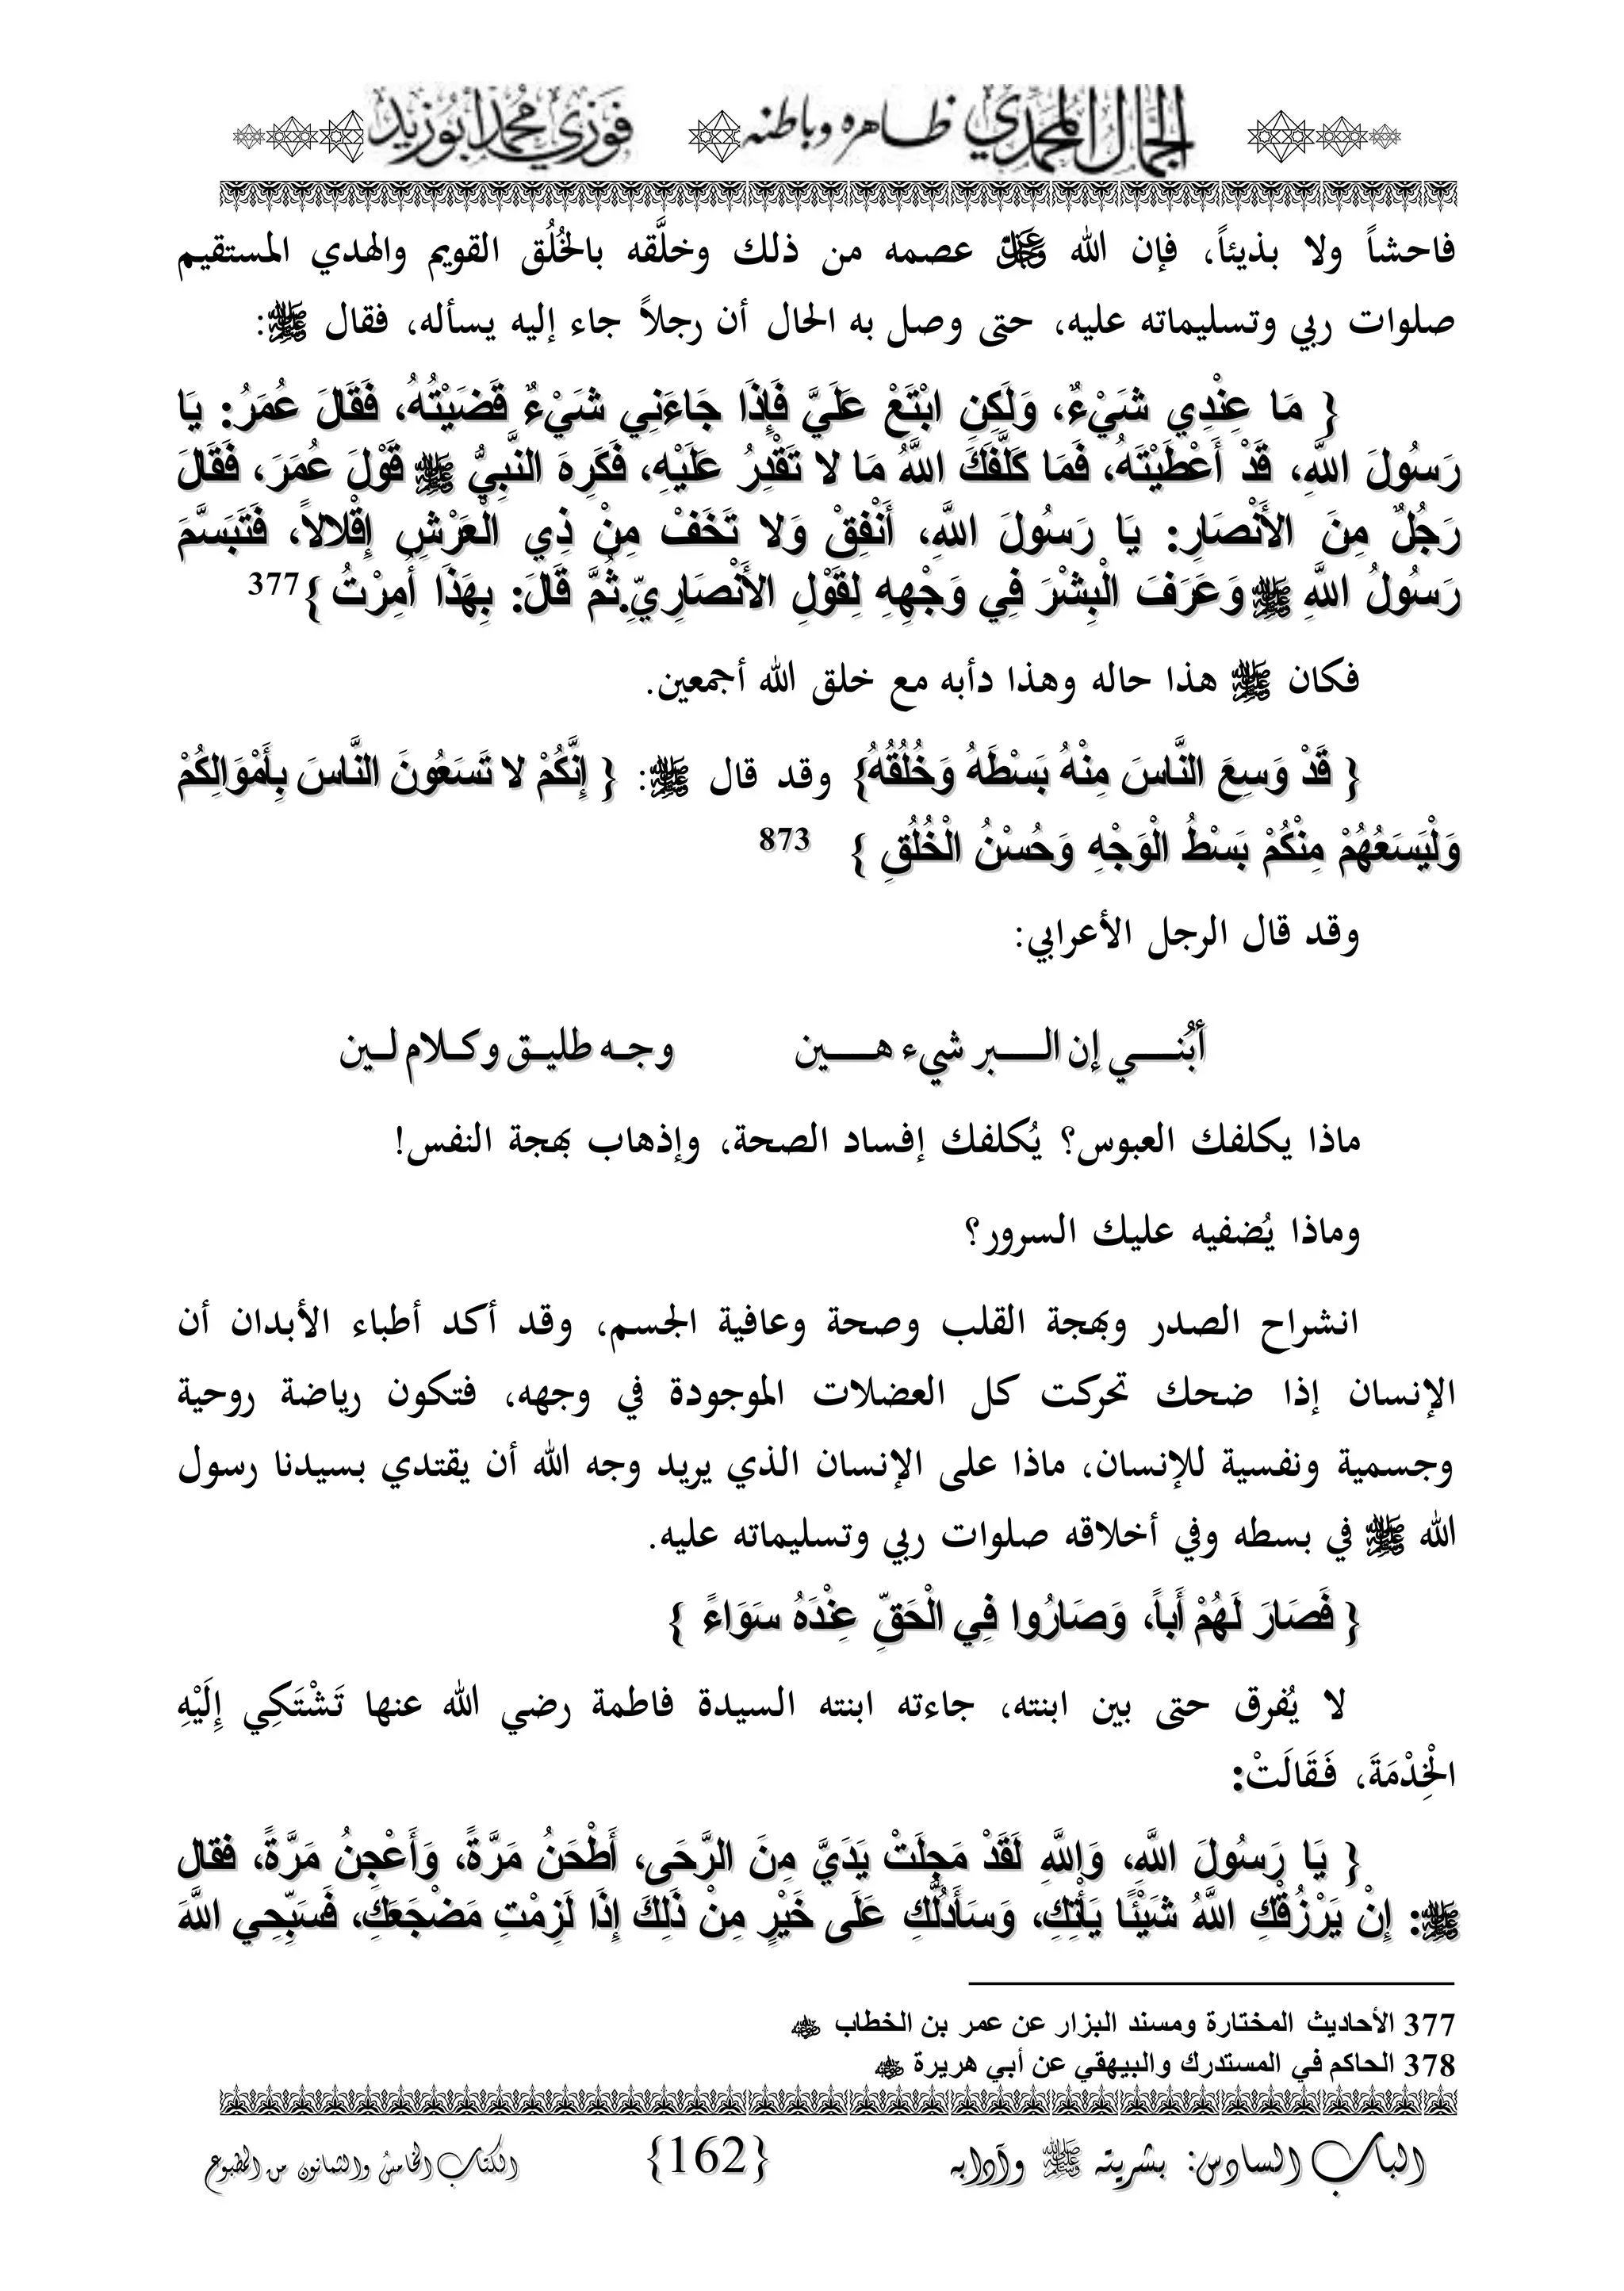 الجمال المحمدي ظاهره وباطنه فوزي محمد أبوزيد
فاحشاً ولا بذيئاً، فإن الله عصمه من ذلك وخلَّقه بالخُلُق القويم والهدي المستقيم
صلوات ربي وتسليماته عليه، حتى وصل به الحال أن رجلاً جاء إليه يسأله، فقال ﷺ:
{ مَا عِنْدِي شَيْءٌ، وَلَكِنِ ابْتَعْ عَلَيَّ فَإِذَا جَاءَنِي شَيْءٌ قَضَيْتُهُ، فَقَالَ عُمَرُ: يَا
رَسُولَ اللَّهِ، قَدْ أَعْطَيْتَهُ، فَمَا كَلَّفَكَ اللَّهُ مَا لا تَقْدِرُ عَلَيْهِ، فَكَرِهَ النَّبِيُّ ﷺ قَوْلَ عُمَرَ، فَقَالَ
رَجُلٌ مِنَ الأَنْصَارِ: يَا رَسُولَ اللَّهِ، أَنْفِقْ وَلا تَخَفْ مِنْ ذِي الْعَرْشِ إِقْلالاً، فَتَبَسَّمَ
رَسُولُ اللَّهِ ﷺ وَعَرَفَ الْبِشْرَ فِي وَجْهِهِ لِقَوْلِ الأَنْصَارِيِّ.ثُمَّ قَالَ: بِهَذَا أُمِرْتُ }377
فكان ﷺ هذا حاله وهذا دأبه مع خلق الله أجمعين.
{ قَدْ وَسِعَ النَّاسَ مِنْهُ بَسْطَهُ وَخُلُقُهُ} وقد قال ﷺ: { إِنَّكُمْ لا تَسَعُونَ النَّاسَ بِأَمْوَالِكُمْ
وَلْيَسَعُهُمْ مِنْكُمْ بَسْطُ الْوَجْهِ وَحُسْنُ الْخُلُقِ } 873
وقد قال الرجل الأعرابي:
أبُنــي إن الــبر شيء هــين وجـه طليـق وكـلام لـين
ماذا يكلفك العبوس؟ يُكلفك إفساد الصحة، وإذهاب بهجة النفس!
وماذا يُضفيه عليك السرور؟
انشراح الصدر وبهجة القلب وصحة وعافية الجسم، وقد أكد أطباء الأبدان أن
الإنسان إذا ضحك تحركت كل العضلات الموجودة في وجهه، فتكون رياضة روحية
وجسمية ونفسية للإنسان، ماذا على الإنسان الذي يريد وجه الله أن يقتدي بسيدنا رسول
الله ﷺ في بسطه وفي أخلاقه صلوات ربي وتسليماته عليه.
{ فَصَارَ لَهُمْ أَباً، وَصَارُوا فِي الْحَقِّ عِنْدَهُ سَوَاءً }
لا يُفرق حتى بين ابنته، جاءته ابنته السيدة فاطمة رضي الله عنها تَشْتَكِي إِلَيْهِ
الْخِدْمَةَ، فَقَالَتْ:
{ يَا رَسُولَ اللَّهِ، وَاللَّهِ لَقَدْ مَجِلَتْ يَدَيَّ مِنَ الرَّحَى، أَطْحَنُ مَرَّةً، وَأَعْجِنُ مَرَّةً، فقال
ﷺ: إِنْ يَرْزُقْكِ اللَّهُ شَيْئًا يَأْتِكِ، وَسَأَدُلُّكِ عَلَى خَيْرٍ مِنْ ذَلِكَ إِذَا لَزِمْتِ مَضْجَعَكِ، فَسَبِّحِي اللَّهَ
377 الأحاديث المختارة ومسند البزار عن عمر بن الخطاب
378 الحاكم في المستدرك والبيهقي عن أبي هريرة
الباب السادس: بشريته ﷺ وآدابه {162} الكتاب الخامس والثمانون من المطبوع